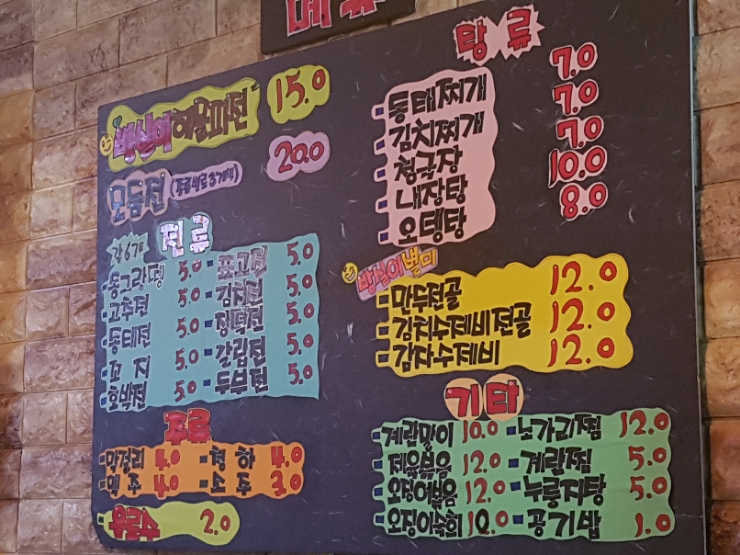 메뉴
방실이해물파전 15.0
모듬전 20.0
전류
각6개
동그랑땡 5.0 표고전 5.0
고추전 5.0 김치전 5.0
동태전 5.0 정덕전 5.0
꼬지 5.0 갈립전 5.0
호박전 5.0 두부전 5.0
주류
막걸리 4.0 청하 4.0
맥주 4.0 소주 3.0
음료수 2.0
탕류
동태찌개 7.0
김치찌개 7.0
청국장 7.0
내장탕 10.0
오뎅탕 8.0
방실이별미
만두전골 12.0
김치수제비전골 12.0
감자수제비 12.0
기타
계란말이 10.0 노가리찜 12.0
제육볶음 12.0 계란찜 5.0
오징어볶음 12.0 누룽지탕 5.0
오징어숙회 10.0 공기밥 1.0